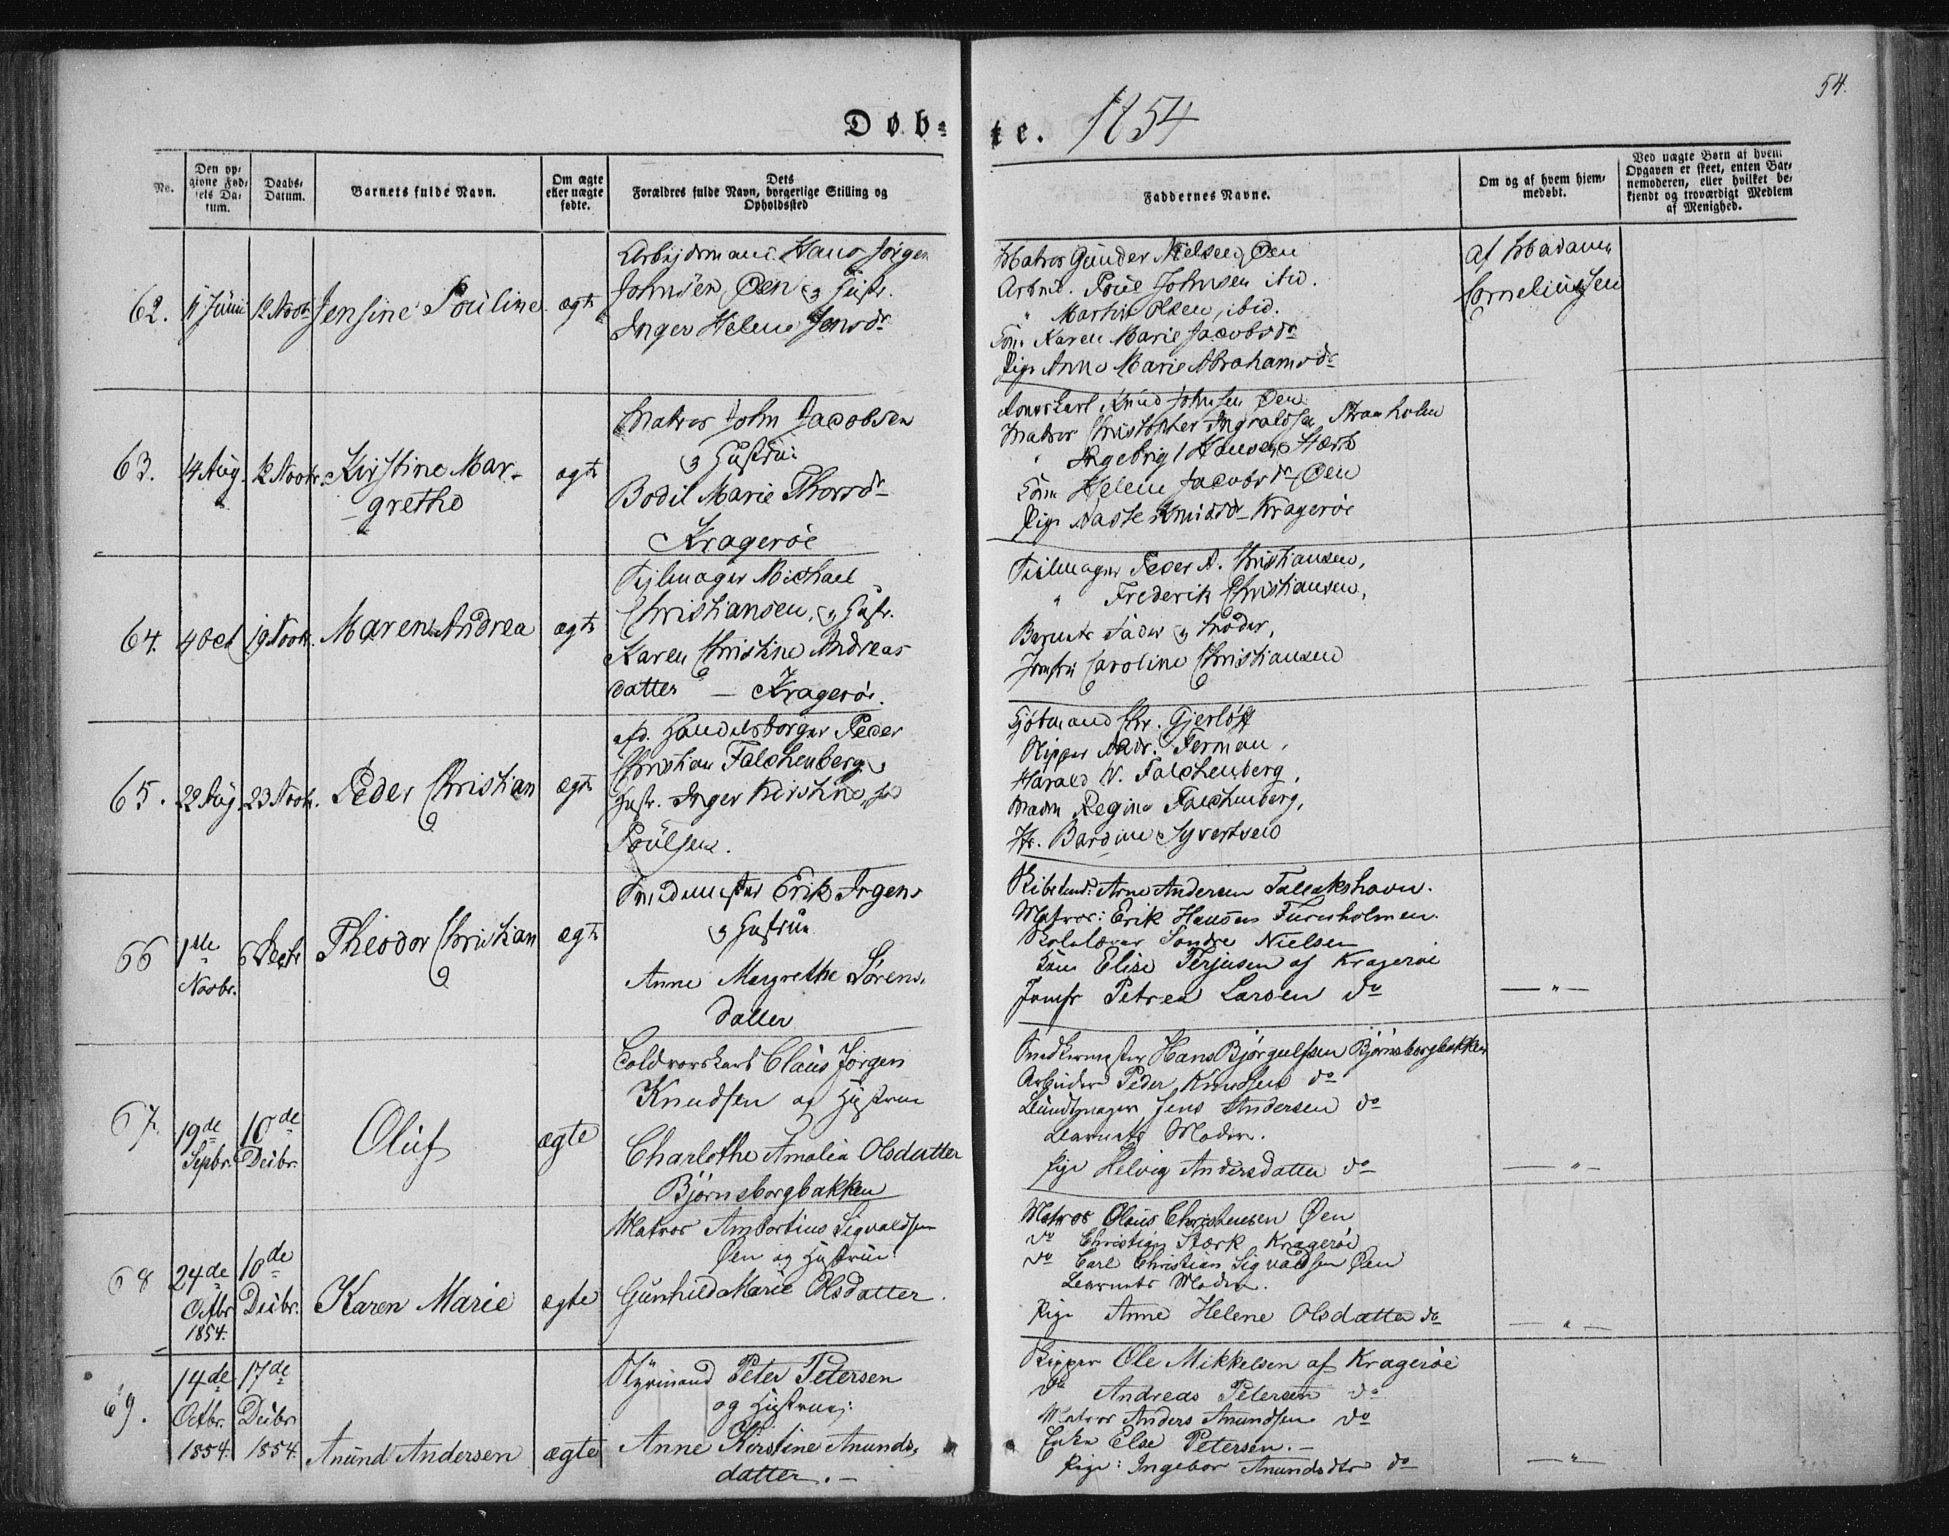 54.
Døb- te. 1854
No.
Den op-
givne Fød-
sels Da-
tum.
Daabs-
Datum.
Barnets fulde Navn.
Om ægte
eller uægte
fødte.
Dets
Forældres fulde Navn, borgerlige Stilling og
Opholdssted
Faddernes Navne.
Om og af hvem hjem-
medøbt.
Ved uægte Børn af hvem
Opgaven er skeet, enten Bar-
nemoderen, eller hvilket be-
kjendt og troværdigt Medlem
af Menighed.
62. 11 Juni 12 Novbr. Jensine Pouline ægte
Arbejdsmand Hans Jørgen
Johnsen, Øen & Hustr.
Inger Helene Jensdr
Matros Gunder Nielsen, Øen
Arbmd. Johnsen ibid.
" Martin Olsen, ibid.
Kone Karen Marie Jacobsdr
Pige Anne Marie Abrahamsdr
af Madame
Corneliussen
63. 14 Aug. 12 Novbr. Kirstine Mar-
grethe
ægte
Matros John Jacobsen
& Hustrue
Bodil Marie Thorsdr
Kragerøe
Knud Johnsen Øen
Matros Christopher Ingvaldsen
" Ingebrigt Hansen,
Kone Helene Jacobsdr Øen
Pige Aaste Knudsdr Kragerøe
64. 4 Oct 19 Novbr. Maren Andrea ægte
Seilmager Michael
Christiansen, & Hustr.
Karen Christine Andreas
datter — Kragerøe.
Seilmager Peder A. Christiansen,
" Frederik Christiansen,
Barnets Fader & Moder,
Jomfru Caroline Christiansen
65. 22 Aug. 23 Novbr. Peder Christian ægte
afd. Handelsborger Peder
Christian Falchenberg &
Hustr. Inger Kirstine, fød
Poulsen.
Chr. Gjerløff
Skipper Andr. Ferman,
Harald N. Falchenberg,
Madm Regine Falchenberg,
Bardine Syvertsen
66 1ste
Novbr.
6 Decbr Theodor Christian ægte
Smedemester Erik Irgens
& Hustrue
Anne Margrethe Sørens-
datter
Arne Andersen Tallakshavn.
Matros: Erik Hansen Furuholmen.
Skolelærer Sondre Nielsen
Kone Elise Terjesen af Kragerøe
Jomfr Petrea Larsen do
— " —
67. 19de
Septbr.
10de
Decbr.
Oluf
ægte
Coldvorskarl Claus Jørgen
Knudsen og Hustrue
Charlothe Amalia Olsdatter
Bjørnsborgbakken
Snedkermester Hans Bjørgulfsen Bjørnsborgbakken
Arbeider Peder Knudsen do
Buntmager Jens Andersen do
Barnets Moder.
Pige Helvig Andersdatter do
— " —
68 24de
Octbr
1854.
10de
Decbr.
Karen Marie ægte
Matros Ambortius Sigvaldsen
Øen og Hustrue:
Gunhild Marie Olsdatter.
Matros Olaus Christensen Øen
do Christian Stærk, Kragerøe
do Carl Christian Sigvaldsen Øen
Barnets Moder.
Pige Anne Helene Olsdatter do
— " —
69. 14de
Octbr.
1854.
17de
Decbr
1854.
Anund Andersen ægte
Styrmand Peter Petersen
og Hustrue:
Anne Kirstine Anunds-
datter. —
Skipper Ole Mikkelsen af Kragerøe
do Andreas Petersen do
Matros Anders Anundsen do
Enke Else Petersen. —
Pige: Ingebor Anundsdtr do
— " —